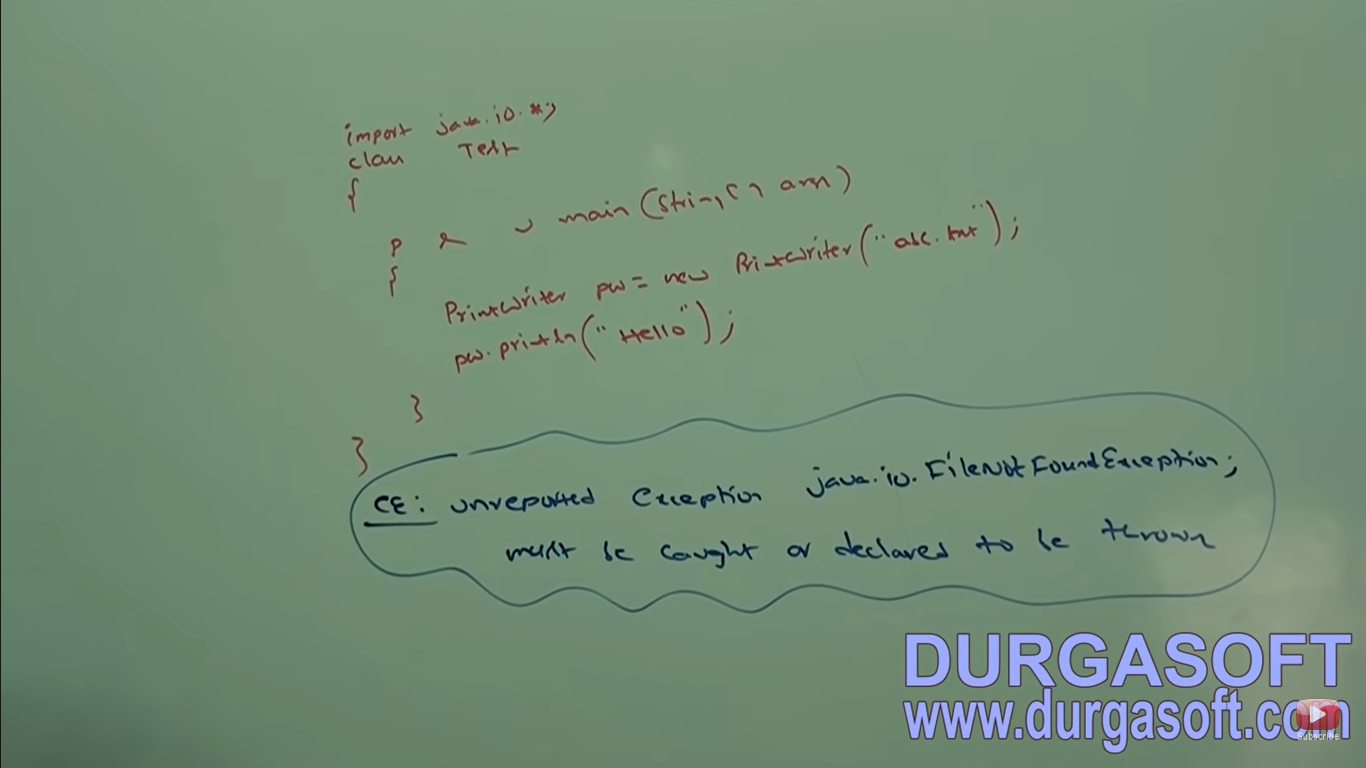 import java.io.*;
class Test
{
p s v main(String[] args)
{
PrintWriter pw = new PrintWriter("abc.txt");
pw.println("Hello");
}
}
CE: unreported exception java.io.FileNotFoundException;
must be caught or declared to be thrown
DURGASOFT
www.durgasoft.com
Subscribe